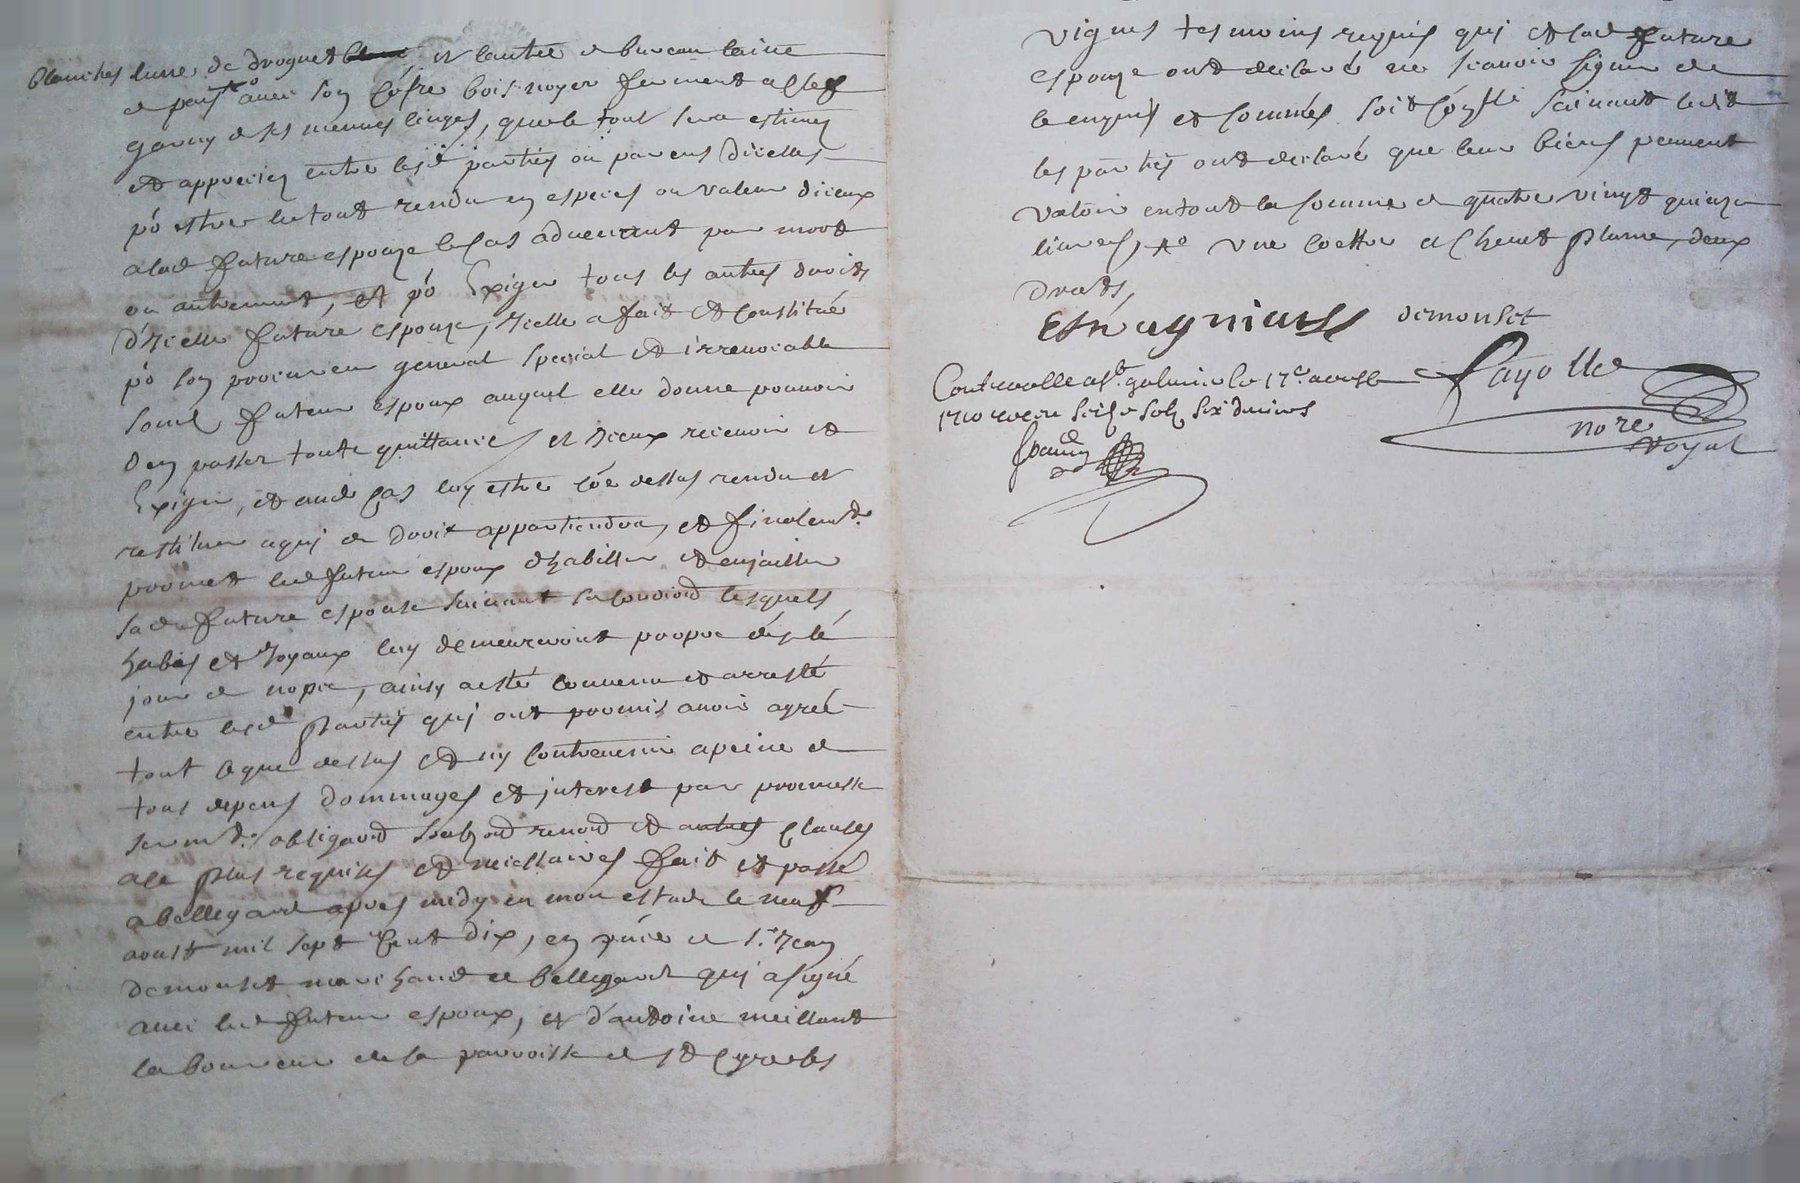 blanches lune de droguet et lautre de bureau laine
de pays avec son cofre bois noyer fermant a clef
garny de ses menues linges, que le tout sera estimés
et appreciez entre lesd parties ou parens dicelles
po estre le tout rendu en especes ou valeur diceux
a lad future espouze le cas advenant par mort
ou autrement, et po Exiger tous les autres droits
d'icelle future espouze, icelle a fait et constitué
po son procureur general special et irrevocable
sond futeur espoux auquel elle donne pouvoir
den passer toute quittances et diceux recevoir et
Exiger, et aud cas luy estre cõe dessus rendu et
restituer a quj de droit appartiendra, et finalemt
promet led futeur espoux dhabiller et enjoailler
sad future espouse suivant sa condiõn lesquels
habis et Joyaux luy demeureront propre dés lé
jour de nopce, ainsy a esté convenu et arresté
entre lesd parties quj ont promis avoir agreé
tout ce que dessus et ny contrevenir a peine de
tous depens dommages et interest par promesse
sermt obligaõn renõn et autres clauses
a ce plus requises et necessaires fait et passé
a bellegarde apres midy en mon estude le neuf
aoust mil sept cent dix, en pñce de sr Jean
demonset marchand de bellegarde quj a signé
avec led futeur espoux, et d'antoine meillant
laboureur de la parroisse de st Cyr les
vignes tesmoins requis quj et lad future
espouze ont declaré ne scavoir signer de
ce enquis et sommés soit coñllé suivant ledit
les parties ont declaré que leur biens peuvent
valoir en tout la somme de quatre vingt quinze
livres, une coettre et chevet plume, deux
drats,
demonset
Controolle a St galmier le 17e aoust
1710 receu seize solz six deniers
fayolle
nore
royal